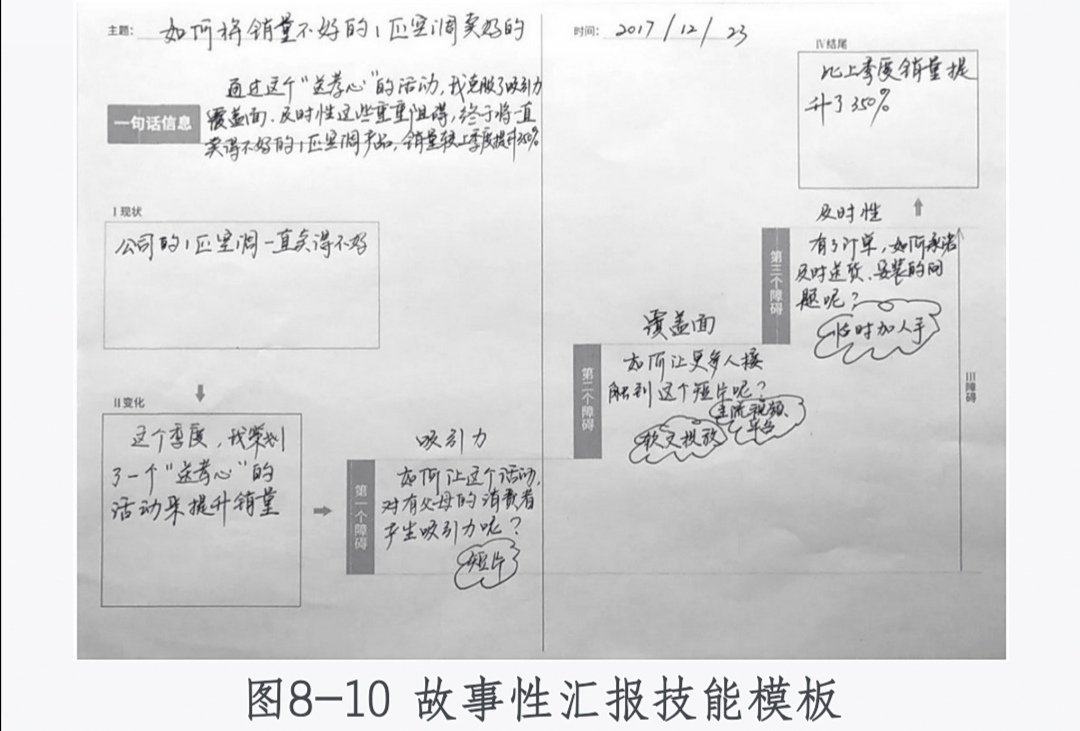 主题： 如何将销量不好的1匹空调卖好的
时间： 2017/12/23
一句话信息
通过这个“送孝心”的活动，我克服了吸引力
覆盖面、及时性这些重重阻碍，终于将一直
卖得不好的1匹空调产品，销量较上季度提升350%
I 现状
公司的1匹空调一直卖得不好
II 变化
这个季度，我策划
了一个“送孝心”的
活动来提升销量
吸引力
第一个障碍
如何让这个活动，
对有父母的消费者
产生吸引力呢？
短片
覆盖面
第二个障碍
如何让更多人接
触到这个短片呢？
主流视频、
平台
软文投放
及时性
第三个障碍
有了订单，如何承诺
及时送货、安装的问
题呢？
临时加人手
III 障碍
IV 结尾
比上季度销量提
升了350%
图8-10 故事性汇报技能模板